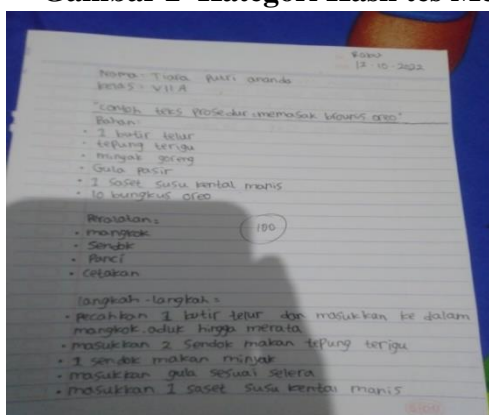 Rabu
12-10-2022
Nama : Tiara Putri ananda
kelas : VII A
"contoh teks prosedur memasak brouwis oreo"
Bahan:
• 1 butir telur
• tepung terigu
• minyak goreng
• Gula pasir
• 1 saset susu kental manis
• 10 bungkus oreo
Peralatan:
• mangkok
• Sendok
• Panci
• cetakan
100
langkah-langkah:
• pecahkan 1 butir telur dan masukkan ke dalam
mangkok, aduk hingga merata
• masukkan 2 sendok makan tepung terigu
• 1 sendok makan minyak
• masukkan gula sesuai selera
• masukkan 1 saset susu kental manis